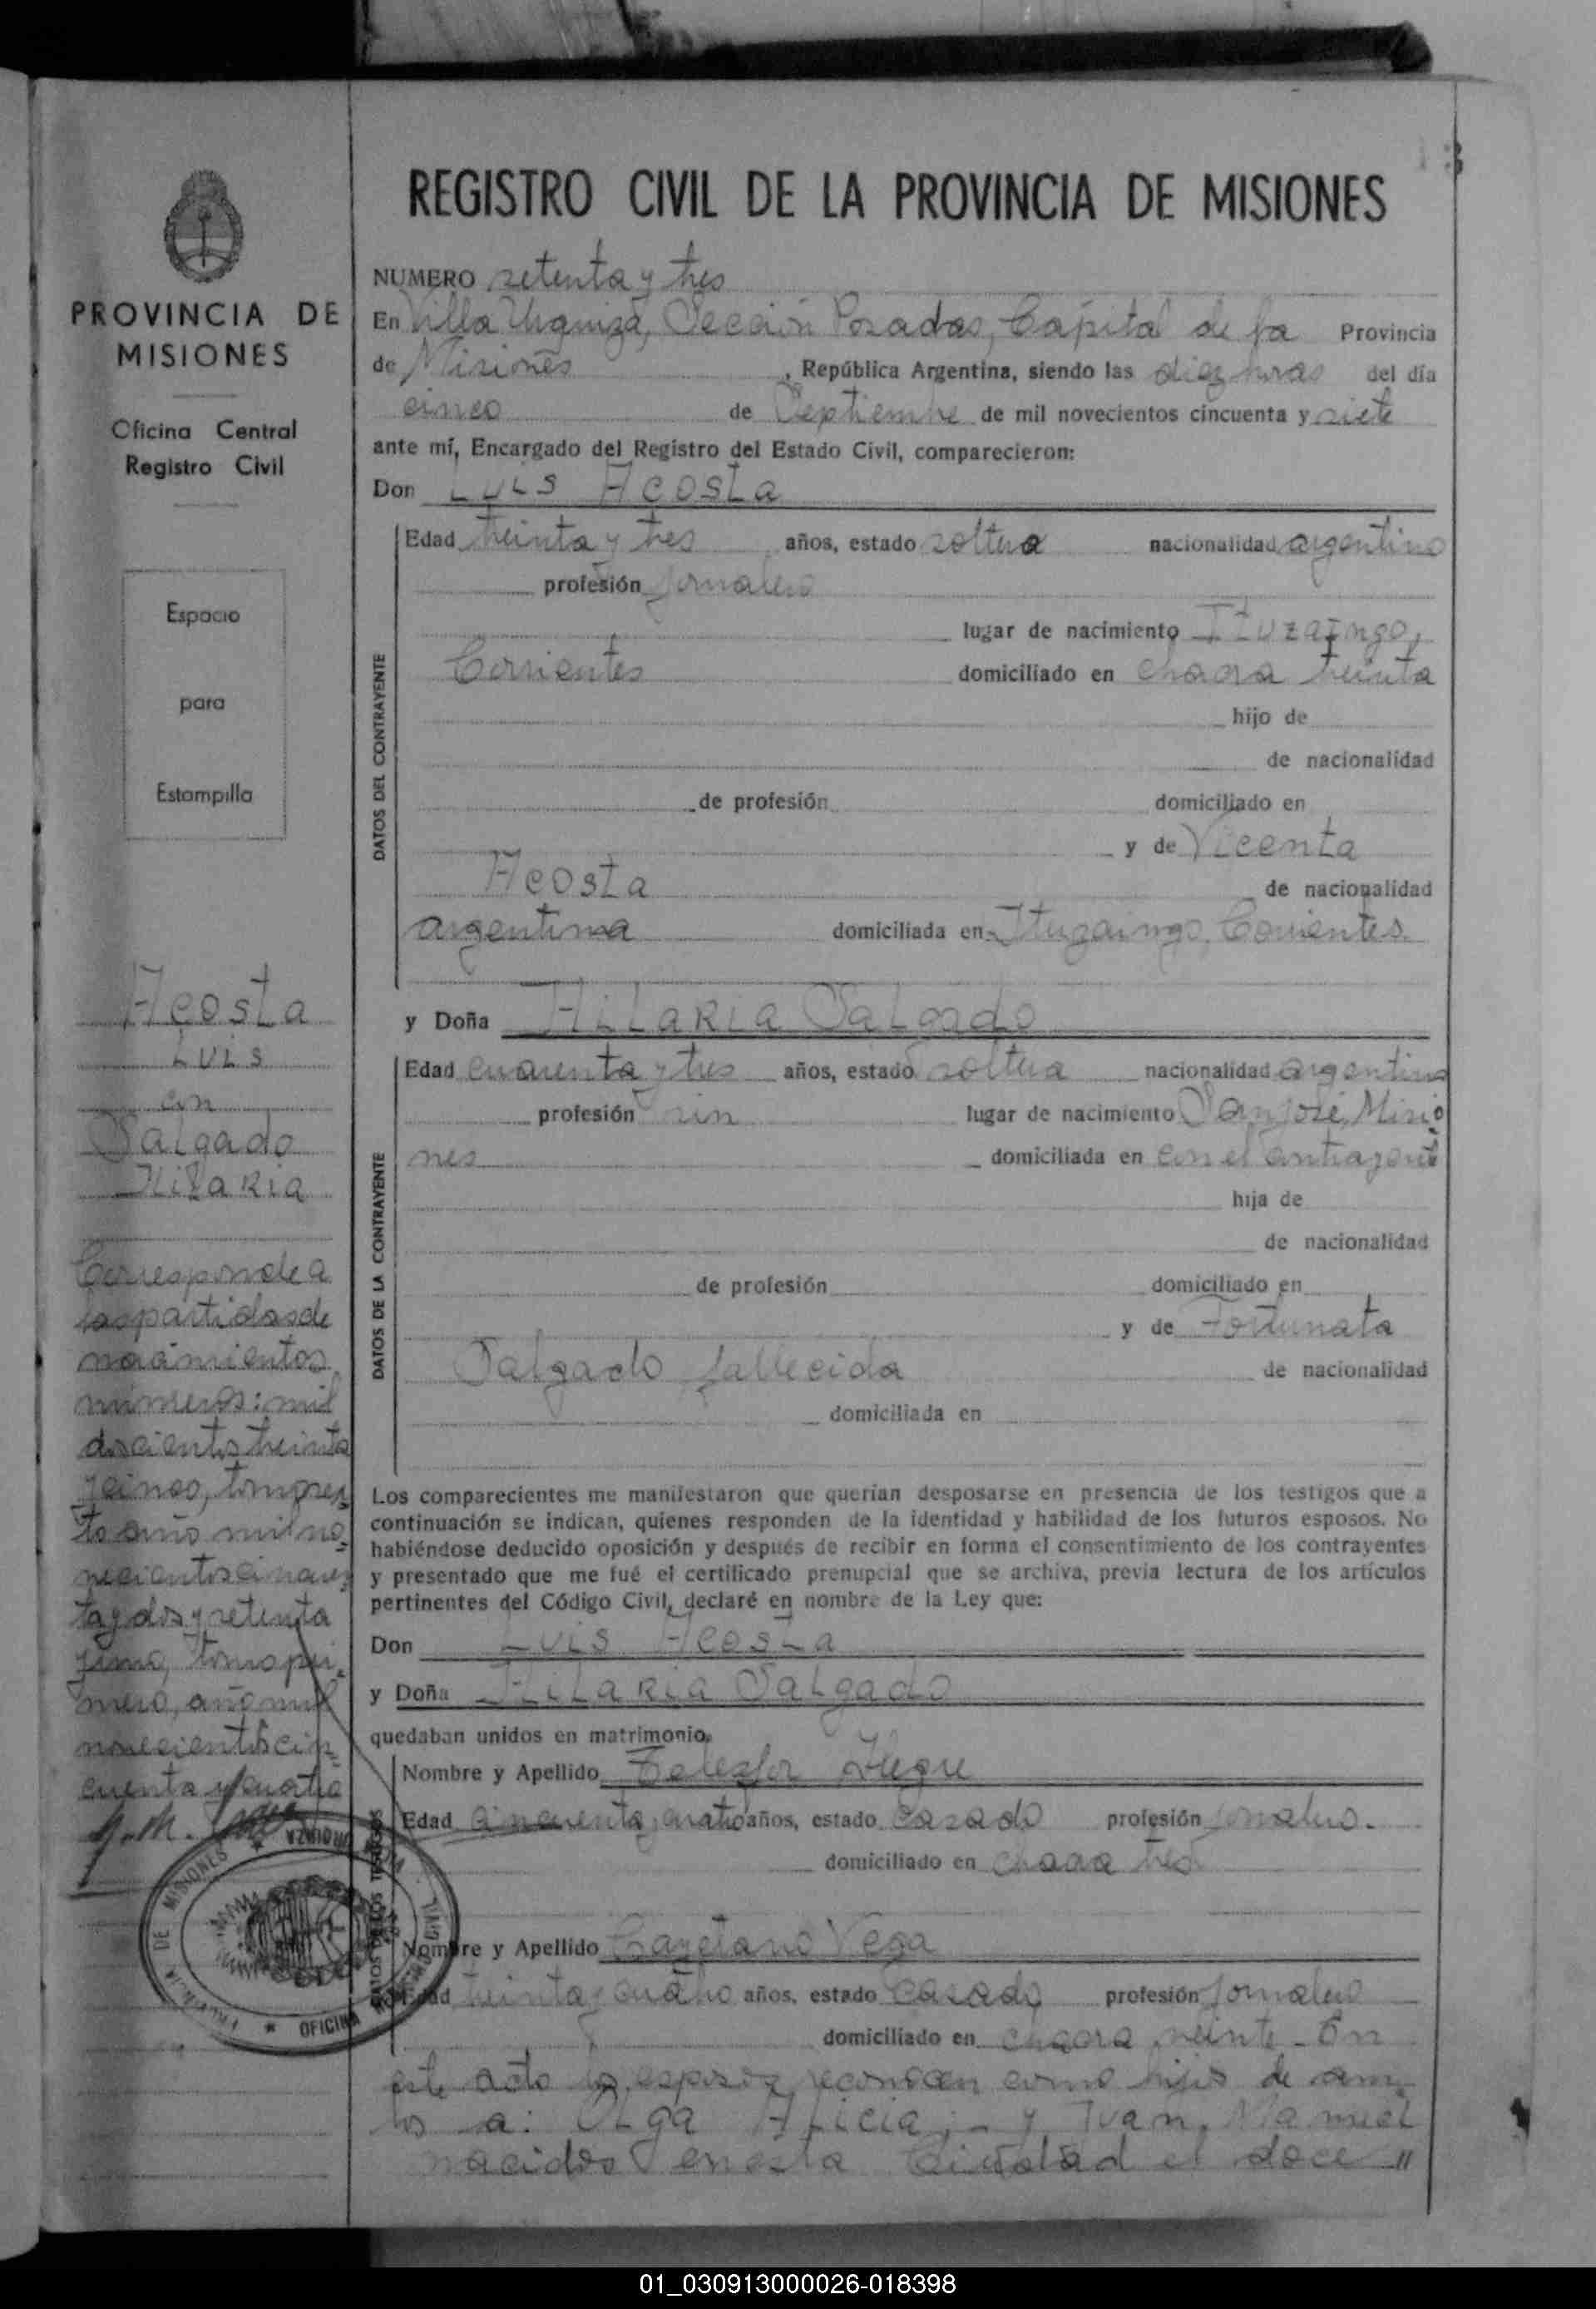 REGISTRO CIVIL DE LA PROVINCIA DE MISIONES
PROVINCIA DE
MISIONES
Oficina Central
Registro Civil
Espacio
para
Estampilla
Acosta
Luis
con
Salgado
Hilaria
Corresponde a
las partidas de
nacimientos
números: mil
doscientos treinta
y cinco, tomo sex
to año mil no
vecientos cincuen
ta y dos y setenta
y uno, tomo pri
mero, año mil
novecientos cin
cuenta y cuatro
NUMERO setenta y tres
En Villa Urquiza, Sección Posadas, Capital de la Provincia
de Misiones, República Argentina, siendo las diez horas del día
cinco de Septiembre de mil novecientos cincuenta y siete
ante mí, Encargado del Registro del Estado Civil, comparecieron:
Don Luis Acosta
DATOS DEL CONTRAYENTE
Edad treinta y tres años, estado soltero nacionalidad argentino
profesión jornalero
lugar de nacimiento Ituzaingo,
Corrientes domiciliado en chacra treinta
hijo de
de nacionalidad
de profesión domiciliado en
y de Vicenta
Acosta de nacionalidad
argentina domiciliada en Ituzaingo, Corrientes.
y Doña Hilaria Salgado
DATOS DE LA CONTRAYENTE
Edad cuarenta y tres años, estado soltera nacionalidad argentina
profesión sin lugar de nacimiento San José, Misio
nes domiciliada en con el contrayente
hija de
de nacionalidad
de profesión domiciliado en
y de Fortunata
Salgado fallecida de nacionalidad
domiciliada en
Los comparecientes me manifestaron que querían desposarse en presencia de los testigos que a
continuación se indican, quienes responden de la identidad y habilidad de los futuros esposos. No
habiéndose deducido oposición y después de recibir en forma el consentimiento de los contrayentes
y presentado que me fué el certificado prenupcial que se archiva, previa lectura de los artículos
pertinentes del Código Civil, declaré en nombre de la Ley que:
Don Luis Acosta
y Doña Hilaria Salgado
quedaban unidos en matrimonio.
DATOS DE LOS TESTIGOS
Nombre y Apellido Telesfor Alegre
Edad cincuenta y cuatro años, estado casado profesión jornalero.
domiciliado en chacra tres
Nombre y Apellido Cayetano Vega
Edad treinta y cuatro años, estado casado profesión jornalero
domiciliado en chacra veinte - En
este acto los esposos reconocen como hijos de am
bos a: Olga Alicia; - y Juan Manuel
nacidos en esta Ciudad el doce "
01_030913000026-018398